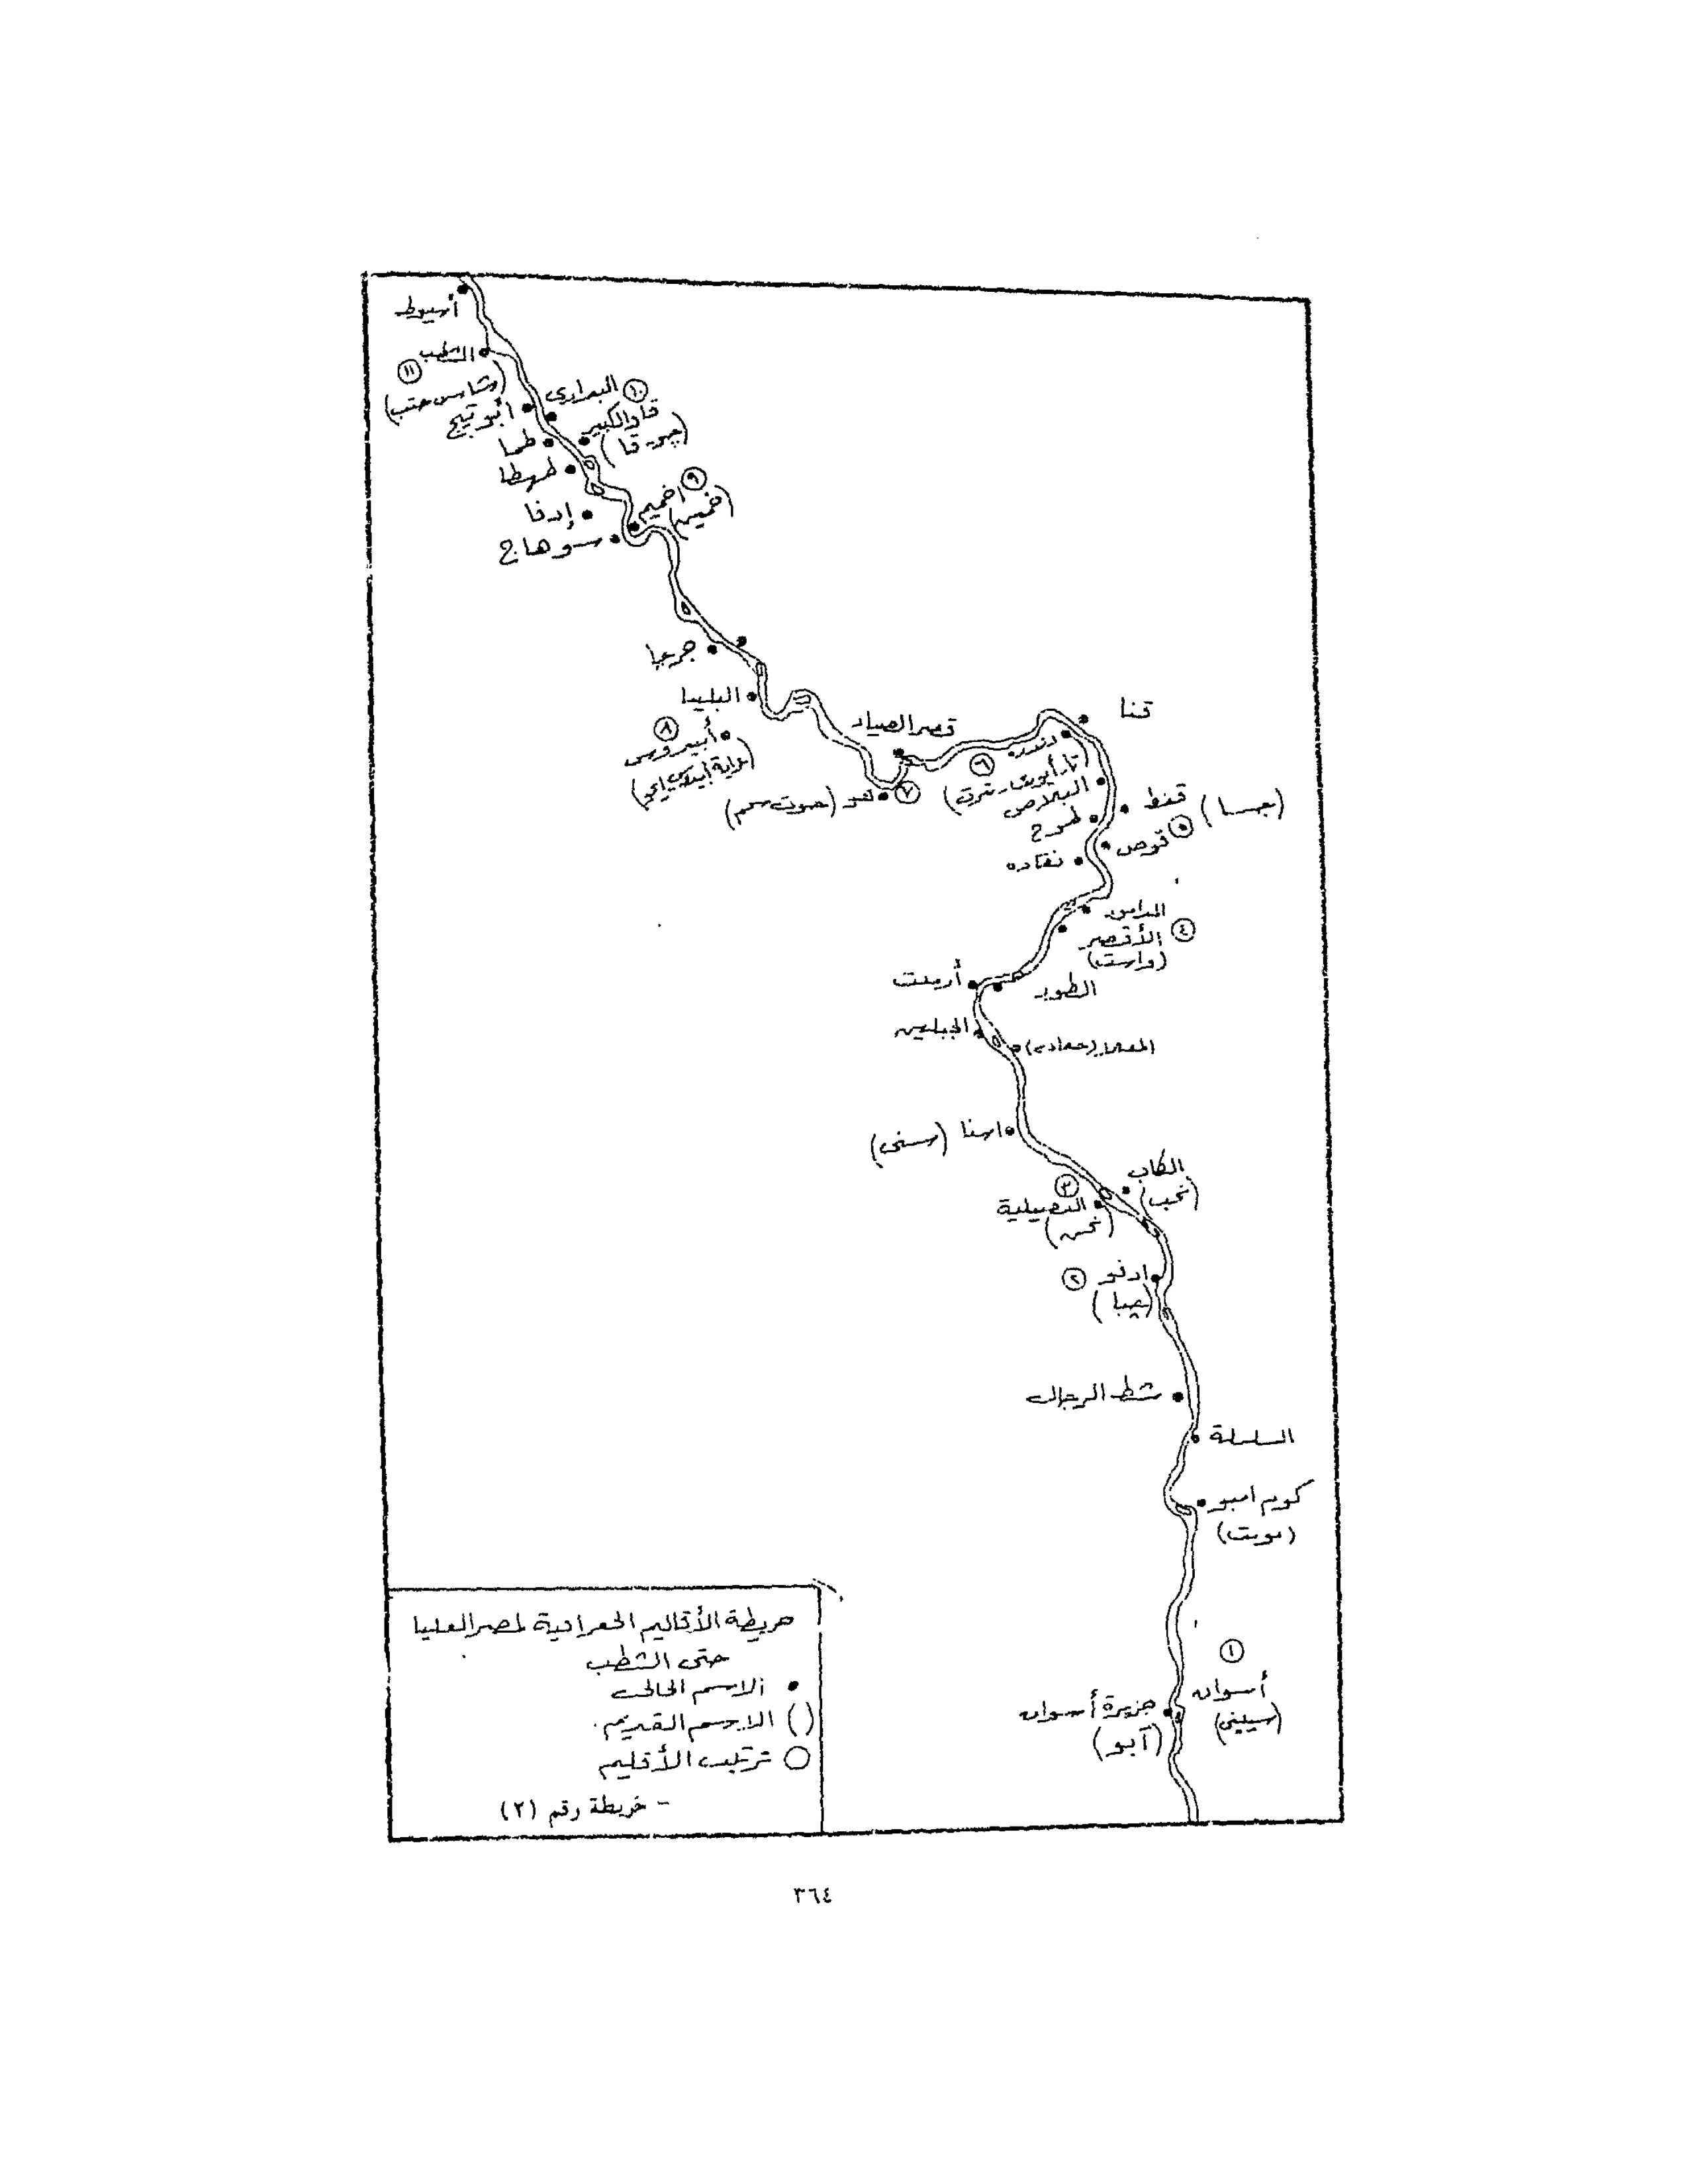 أسيوط
الشطب
١١
(شاس حتب)
أبوتيج
البدارى ١٠
قاو الكبير
طما
طهطا
٩
اخميم
إدفا
سوهاج
جرجا
البلينا
٨
أبيدوس
قصر الصياد
٧
هو
قنا
دندره
٦
البلاص
قفط
طوخ
قوص ٥
نقاده
المدامود
الأقصر ٤
(واست)
أرمنت
الطود
الجبلين
اسنا (سنى)
الكاب
(نخب)
٣
البصيلية
(نخن)
ادفو ٢
شط الرجال
السلسلة
كوم امبو
١
أسوان
جزيرة أسوان
(آبو)
خريطة الأقاليم الجغرافية لمصر العليا
حتى الشطب
• الاسم الحالى
( ) الاسم القديم.
○ ترتيب الأقليم
- خريطة رقم (٢)
٣٦٤